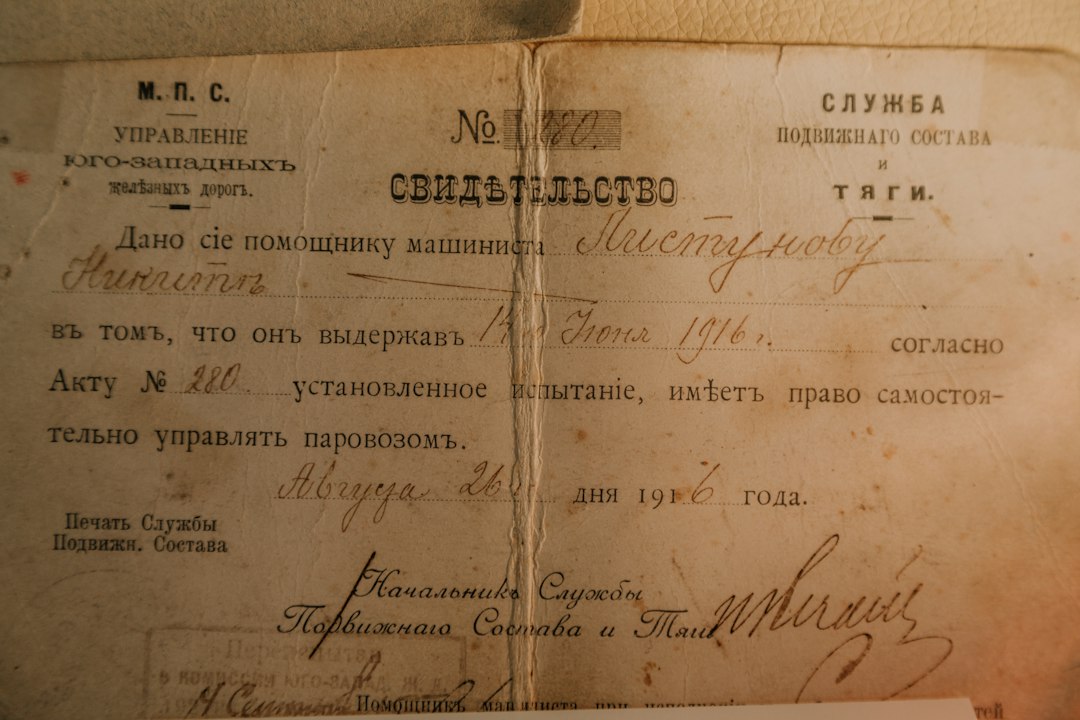 М. П. С.
УПРАВЛЕНІЕ
ЮГО-ЗАПАДНЫХЪ
желѣзныхъ дорогъ.
№ 280.
СЛУЖБА
ПОДВИЖНАГО СОСТАВА
и
ТЯГИ.
СВИДѢТЕЛЬСТВО
Дано сіе помощнику машиниста Листунову
Никитѣ
въ томъ, что онъ выдержавъ Іюня 1916 г. согласно
Акту № 280. установленное испытаніе, имѣетъ право самостоя-
тельно управлять паровозомъ.
Августа 26 дня 1916 года.
Печать Службы
Подвижн. Состава
Начальникъ Службы
Подвижнаго Состава и Тяги
в комиссіи юго-запад. ж. д.
Помощникъ машиниста при